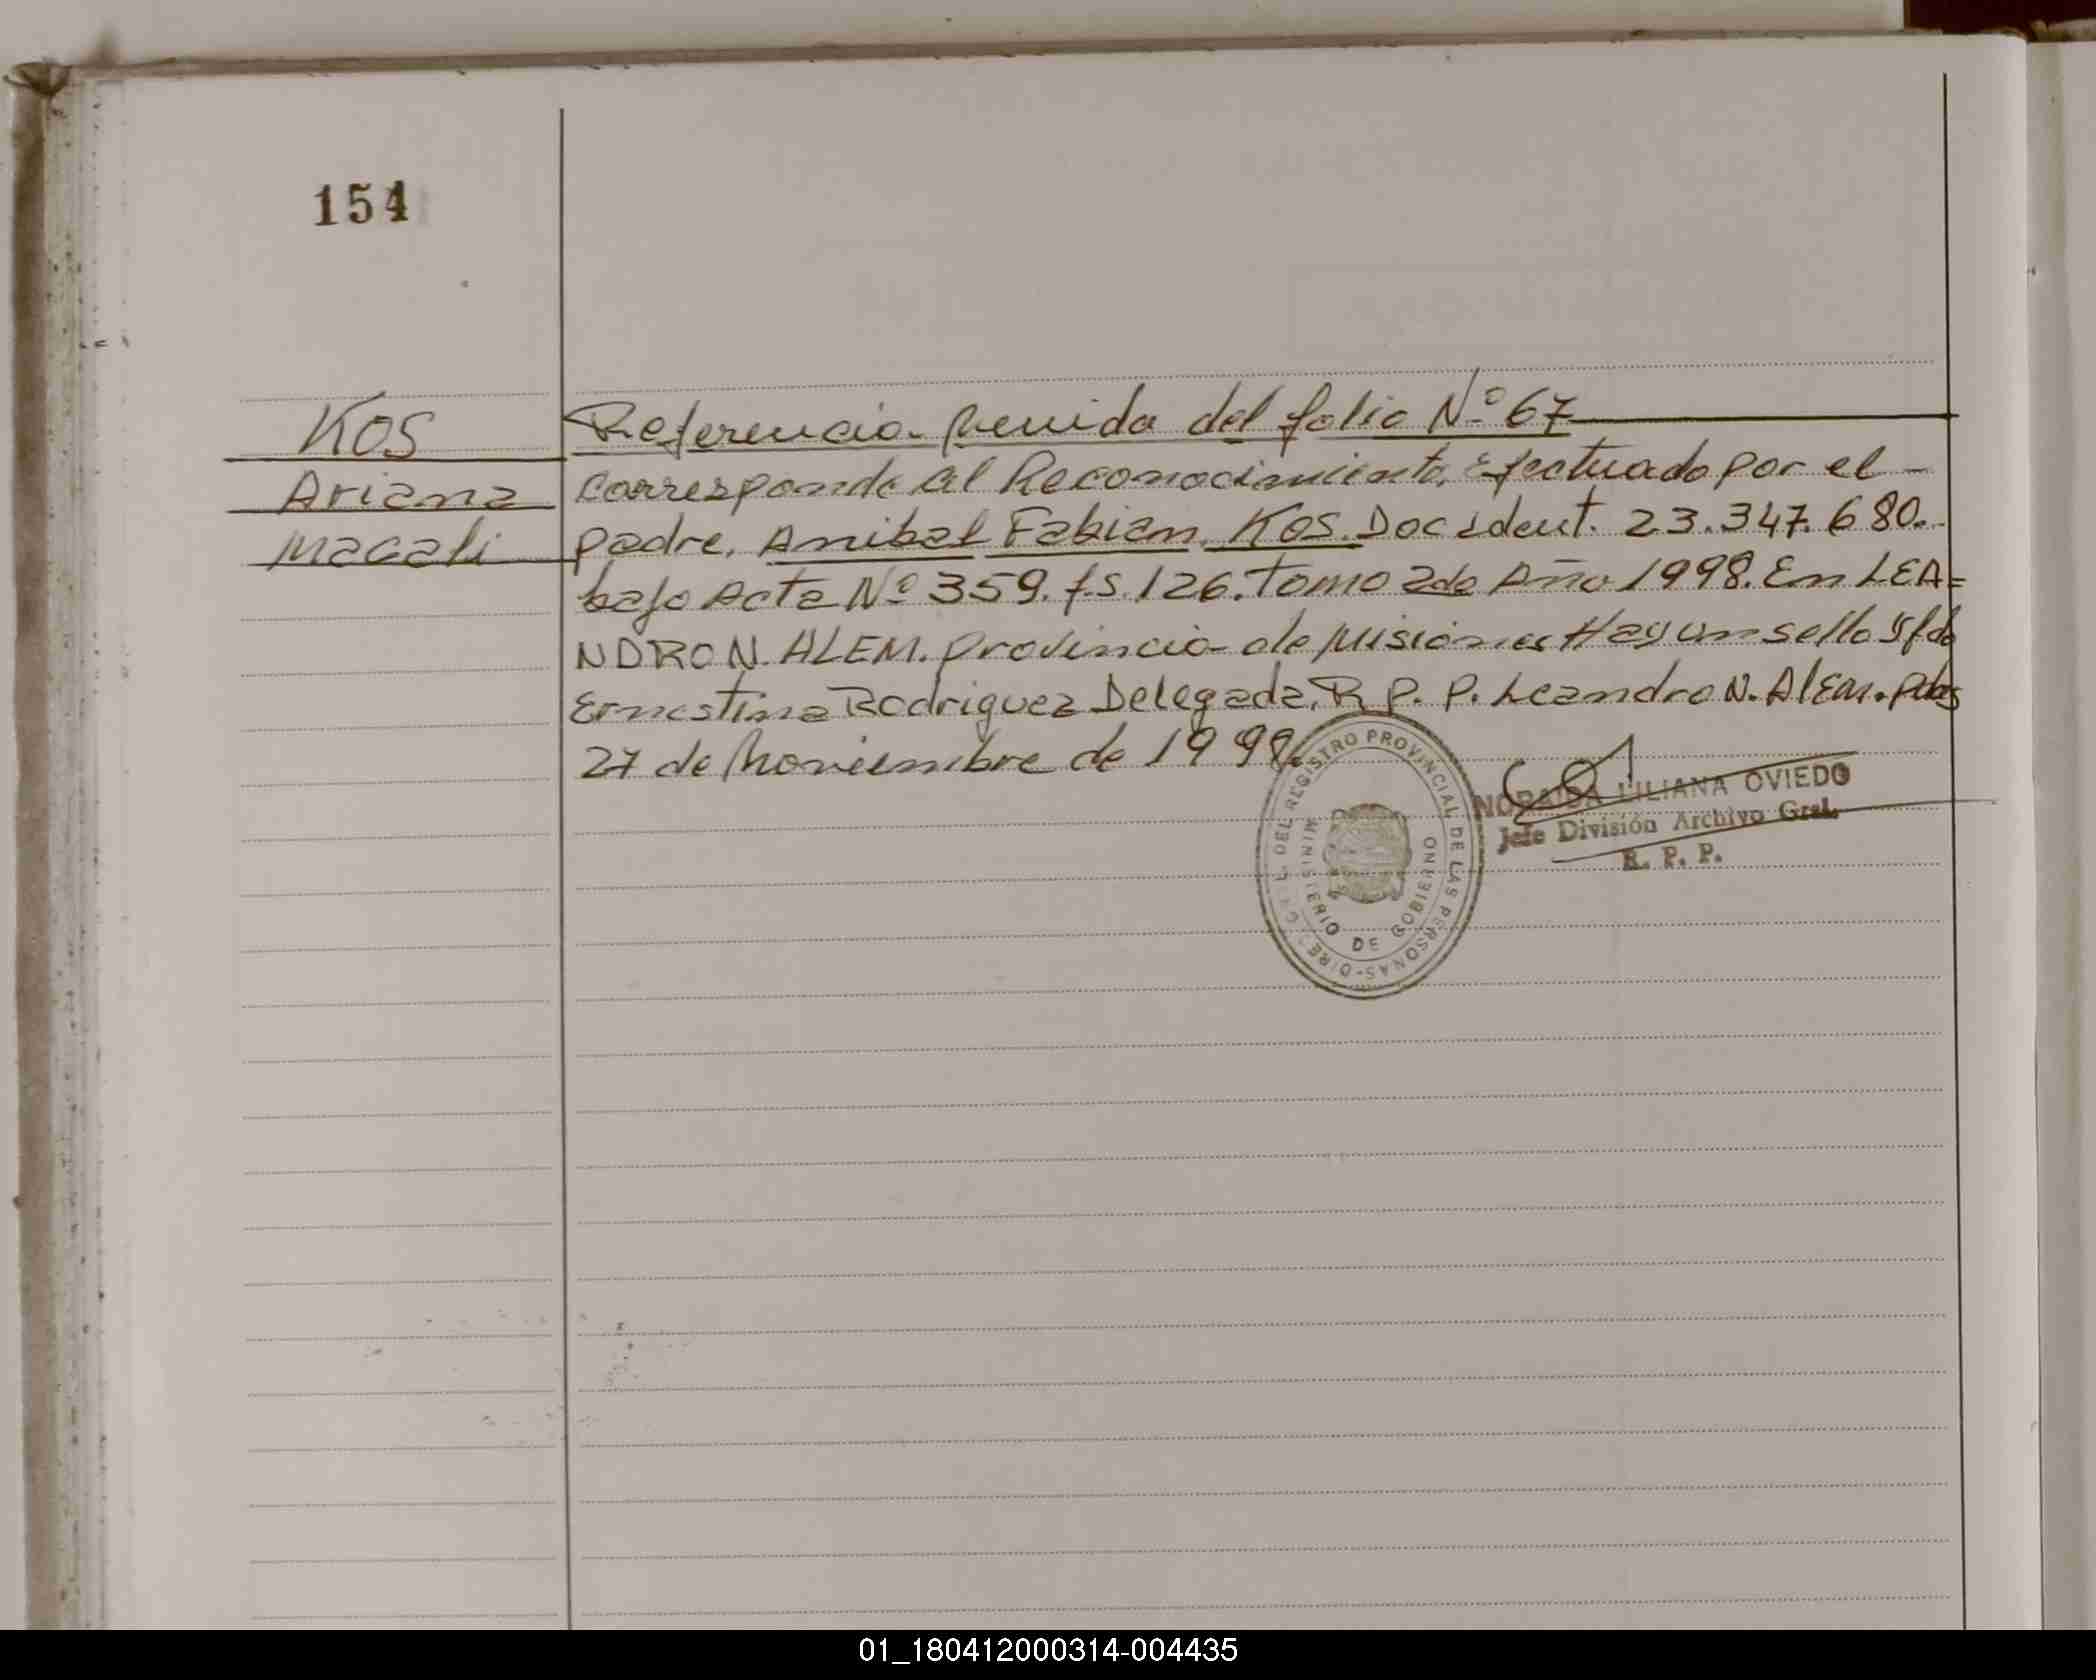 154
KOS
Ariana
Magali
Referencia venida del folio Nº 67
Corresponde al Reconocimiento, Efectuado por el -
padre, Anibal Fabian, Kos. Doc ident. 23.347.680.
bajo Acta Nº 359. fs. 126. Tomo 2do Año 1998. En LEA=
NDRO N. ALEM. Provincia de Misiones Hay un sello y fdo
Ernestina Rodriguez Delegada, R. P. P. Leandro N. Alem. Pdas
27 de Noviembre de 1998.
NORAIDA LILIANA OVIEDO
Jefe División Archivo Gral.
R. P. P.
DIREC GRAL. DEL REGISTRO PROVINCIAL DE LAS PERSONAS-
MINISTERIO DE GOBIERNO
01_180412000314-004435